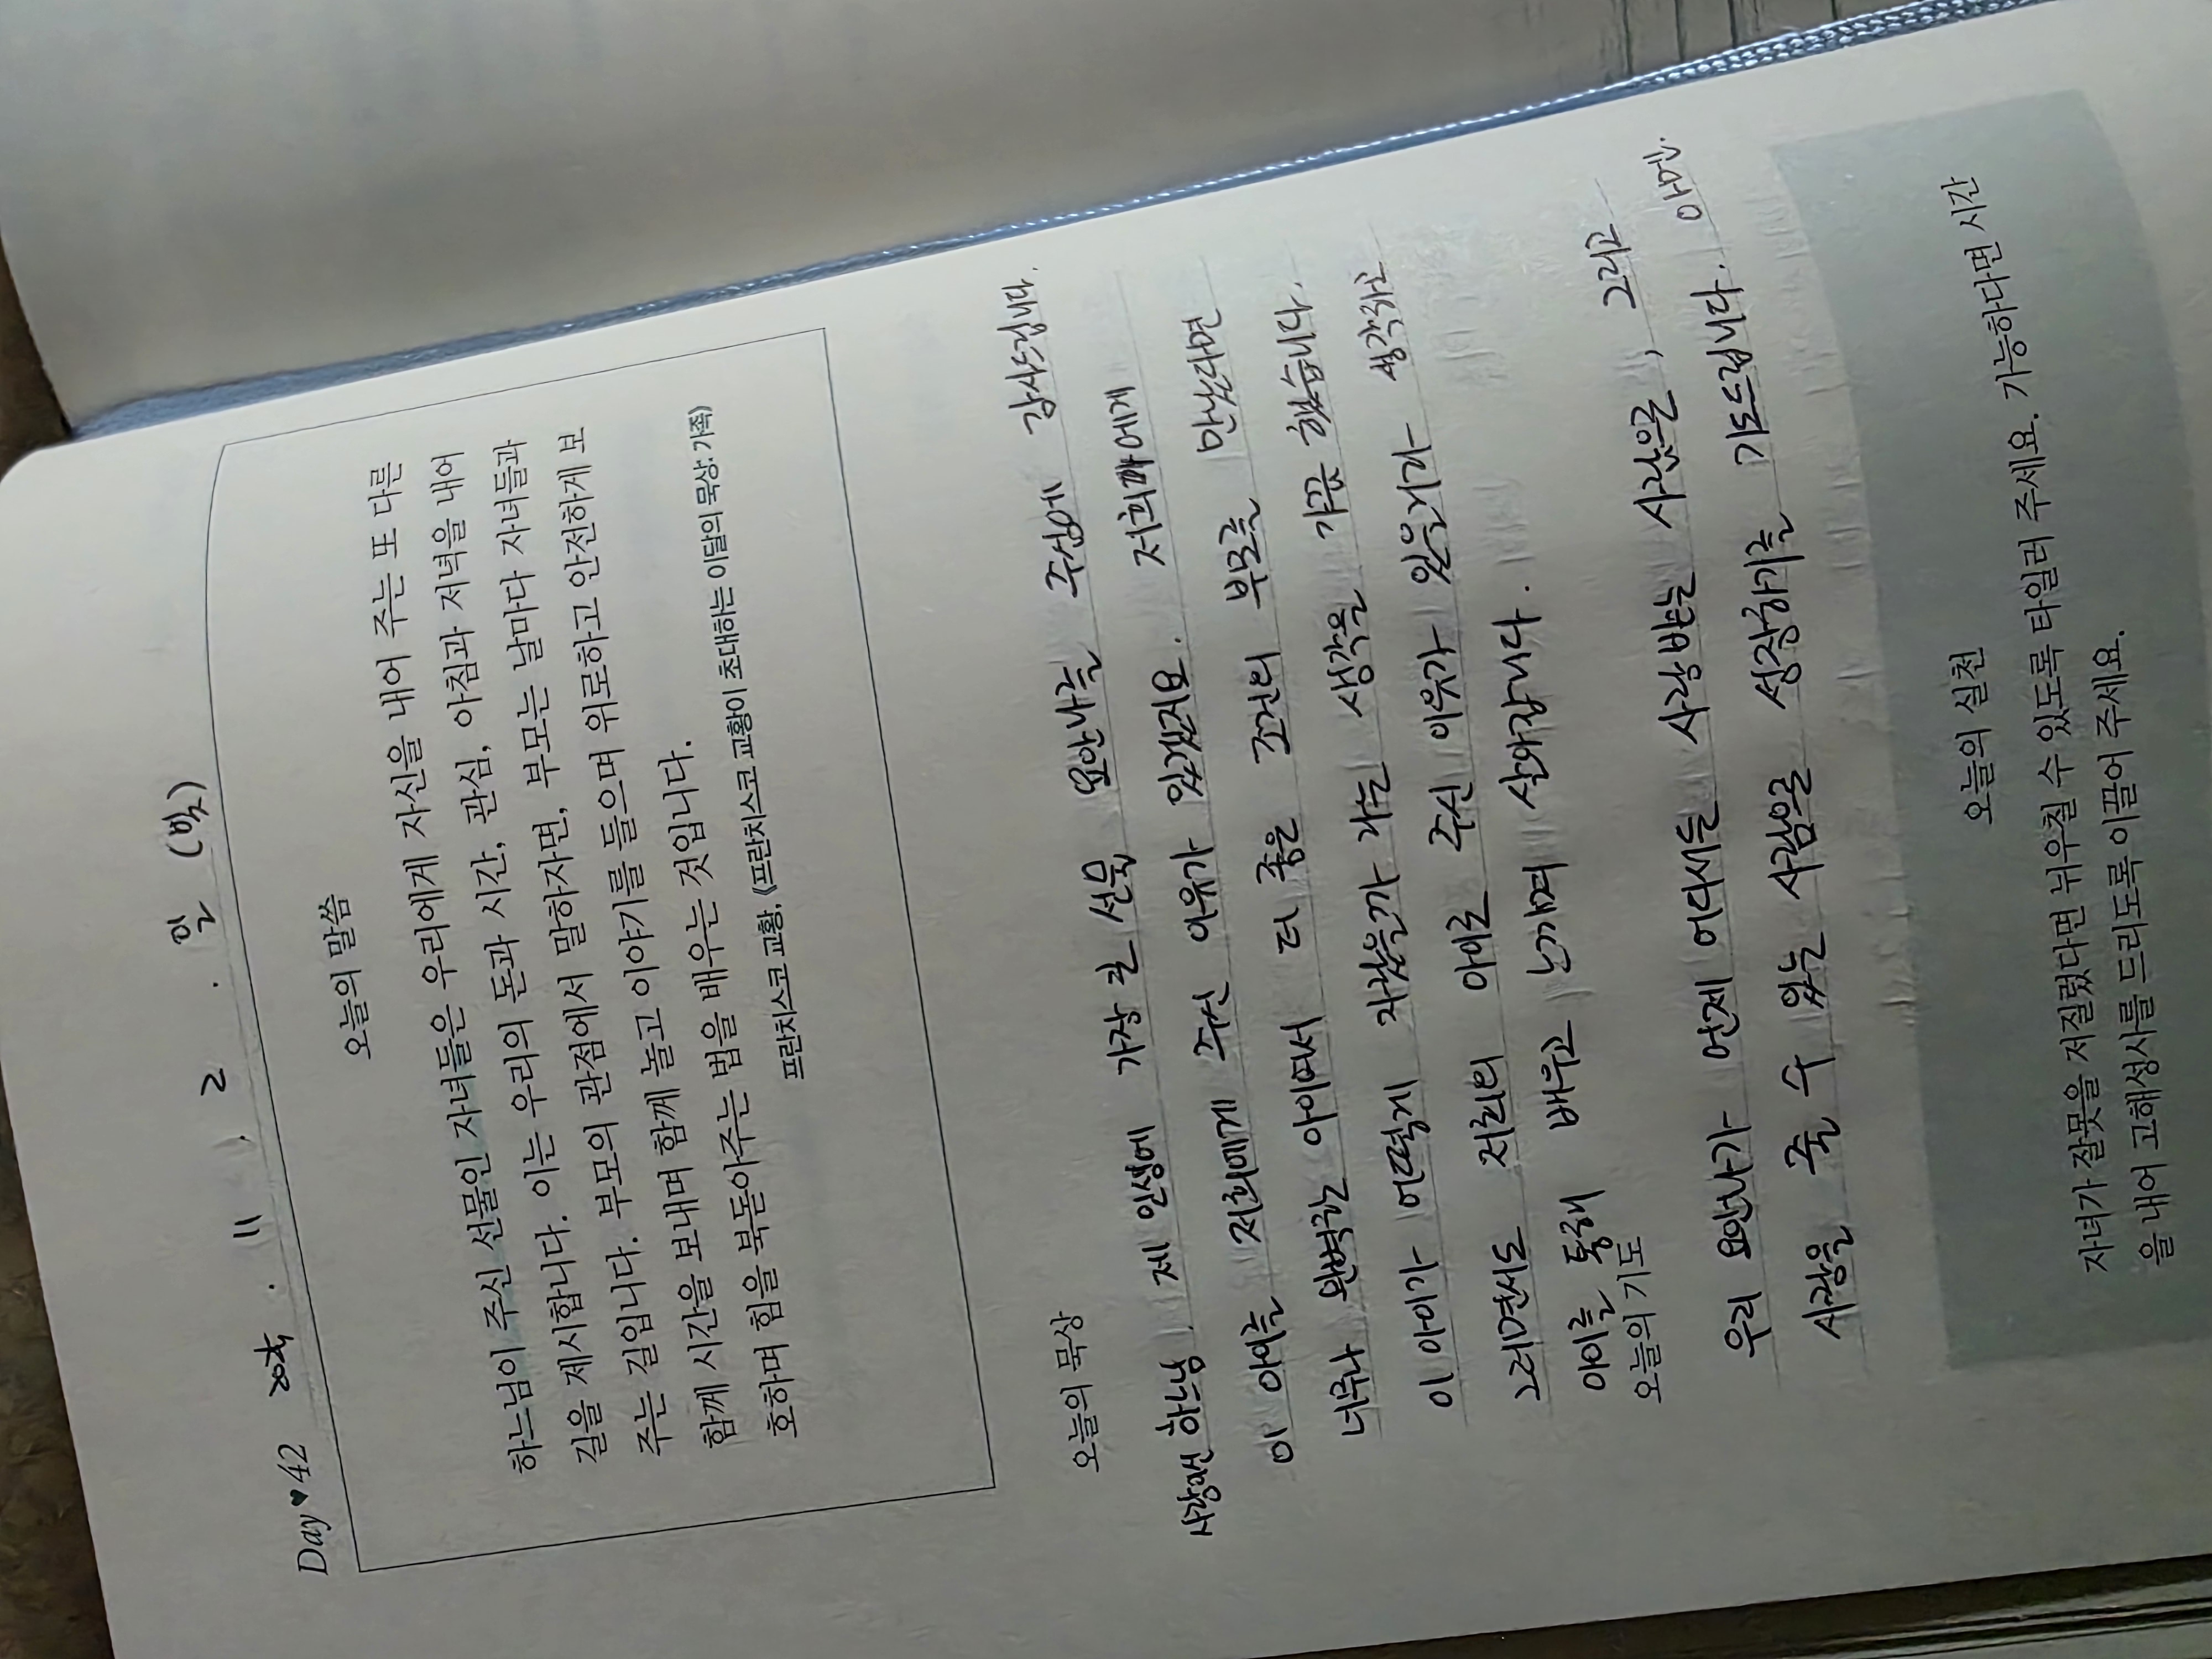 Day ♥ 42 2024. 11. 2. 일 (빛)
오늘의 말씀
하느님이 주신 선물인 자녀들은 우리에게 자신을 내어 주는 또 다른
길을 제시합니다. 이는 우리의 돈과 시간, 관심, 아침과 저녁을 내어
주는 길입니다. 부모의 관점에서 말하자면, 부모는 날마다 자녀들과
함께 시간을 보내며 함께 놀고 이야기를 들으며 위로하고 안전하게 보
호하며 힘을 북돋아주는 법을 배우는 것입니다.
프란치스코 교황, 《프란치스코 교황이 초대하는 이달의 묵상: 가족》
오늘의 묵상
하느님. 제 인생에 가장 큰 선물 요안나를 주심에 감사드립니다.
이 아이를 저희에게 주신 이유가 있겠지요. 저희에게
너무나 완벽한 아이여서 더 좋은 조건의 부모를 만났다면
이 아이가 어떻게 자랐을까 라는 생각을 가끔 했습니다.
그러면서도 저희의 아이로 주신 이유가 있을거라 생각하고
아이를 통해 배우고 느끼며 살아갑니다.
오늘의 기도
우리 요안나가 언제 어디서든 사랑받는 사람을, 그리고
사랑을 줄 수 있는 사람을 성장하기를 기도드립니다. 아멘.
오늘의 실천
자녀가 잘못을 저질렀다면 뉘우칠 수 있도록 타일러 주세요. 가능하다면 시간
을 내어 고해성사를 드리도록 이끌어 주세요.